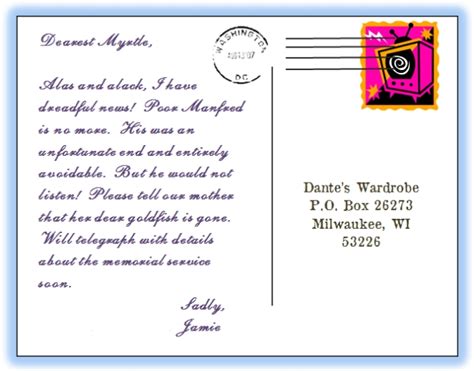 Dearest Myrtle,
Alas and alack, I have
dreadful news! Poor Manfred
is no more. His was an
unfortunate end and entirely
avoidable. But he would not
listen! Please tell our mother
that her dear goldfish is gone.
Will telegraph with details
about the memorial service
soon.
Sadly,
Jamie
WASHINGTON
DC
Dante's Wardrobe
P.O. Box 26273
Milwaukee, WI
53226